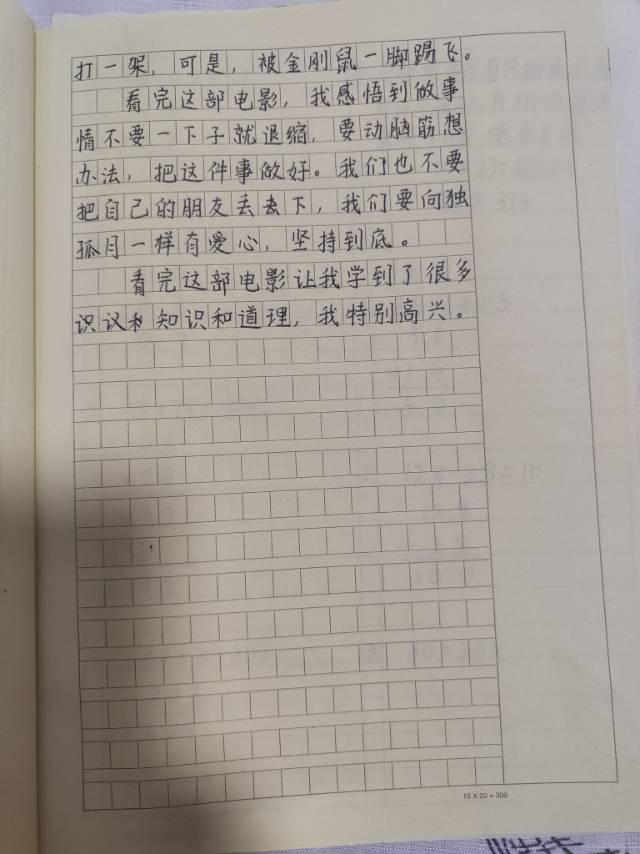 打一架，可是，被金刚鼠一脚踢飞。
看完这部电影，我感悟到做事
情不要一下子就退缩，要动脑筋想
办法，把这件事做好。我们也不要
把自己的朋友丢下，我们要向独
孤月一样有爱心，坚持到底。
看完这部电影让我学到了很多
识议和知识和道理，我特别高兴。
15×20=300